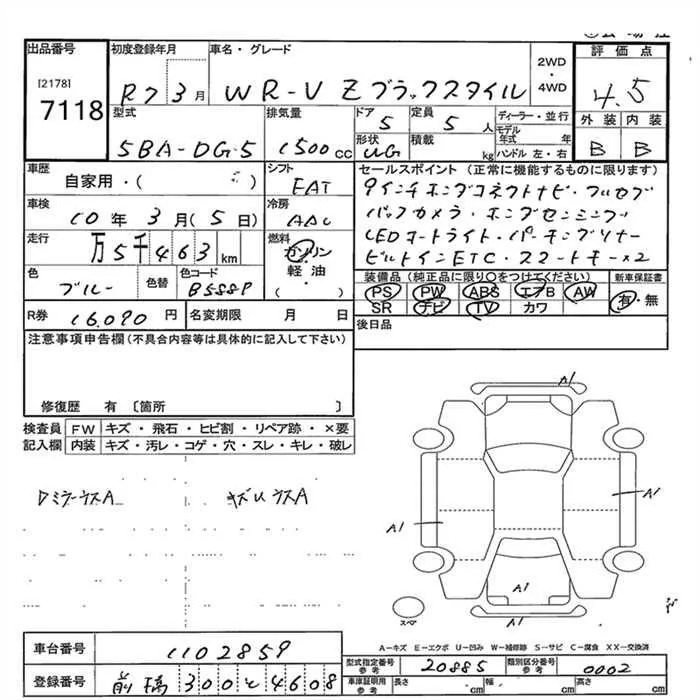 出品番号
[2178]
7118
初度登録年月
R7 3月
車名・グレード
WR-V Zブラックスタイル
2WD
・
4WD
評価点
4.5
外装 内装
B B
型式
5BA-DG5
排気量
1500cc
ドア
5
定員
5人
形状
積載
kg
ディーラー・並行
モデル年式 年
ハンドル 左・右
車歴
自家用・( )
シフト
FAT
セールスポイント (正常に機能するものに限ります)
9インチホンダコネクトナビ・フルセグ
バックカメラ・ホンダセンシング
LEDオートライト・パーキングソナー
ビルトインETC・スマートキー×2
車検
10年3月(5日)
冷房
AAC
走行
万5千463km
燃料
ガソリン
軽油
( )
色
ブルー
色替
色コード
B588P
装備品 (純正品に限り○をつけてください)
新車保証書
PS PW ABS エアB AW
SR ナビ TV カワ
有・無
R券 16.090円
名変期限 月 日
後日品
注意事項申告欄(不具合内容等は具体的に記入して下さい)
修復歴 有 〔箇所 〕
検査員記入欄
FW キズ・飛石・ヒビ割・リペア跡・×要
内装 キズ・汚レ・コゲ・穴・スレ・キレ・破レ
DミラーウスA
キズU ウスA
A1
A1
A1
A1
A1
スペア
A-キズ E-エクボ U-凹み W-補修跡 S-サビ C-腐食 XX-交換済
車台番号 1102859
登録番号 前橋 300 と 4608
型式指定番号 参考 20885
類別区分番号 参考 0002
車庫証明用 参考 長さ cm 幅 cm 高さ cm